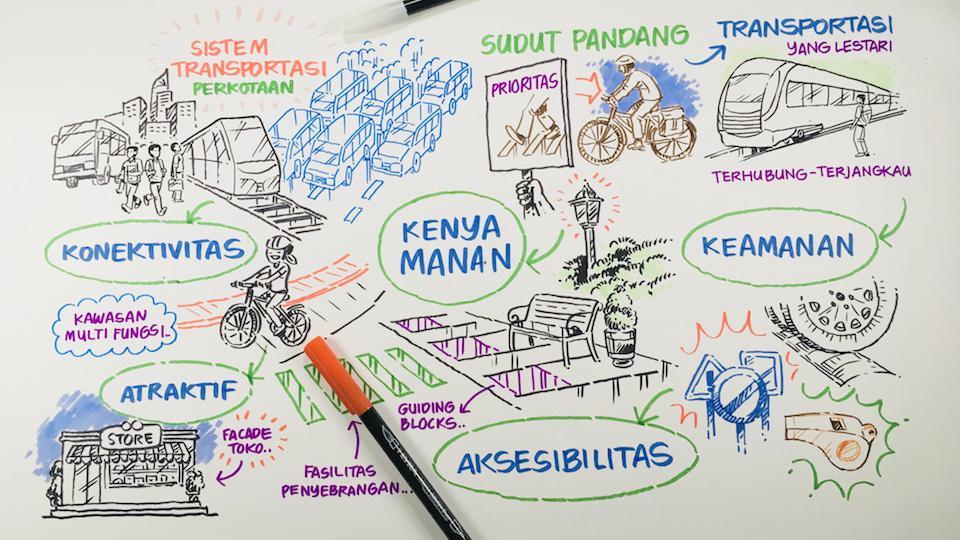 SISTEM
TRANSPORTASI
PERKOTAAN
SUDUT PANDANG
TRANSPORTASI
YANG LESTARI
PRIORITAS
TERHUBUNG-TERJANGKAU
KONEKTIVITAS
KENYA
MANAN
KEAMANAN
KAWASAN
MULTI FUNGSI..
ATRAKTIF
STORE
FACADE
TOKO..
GUIDING
BLOCKS..
FASILITAS
PENYEBRANGAN...
AKSESIBILITAS